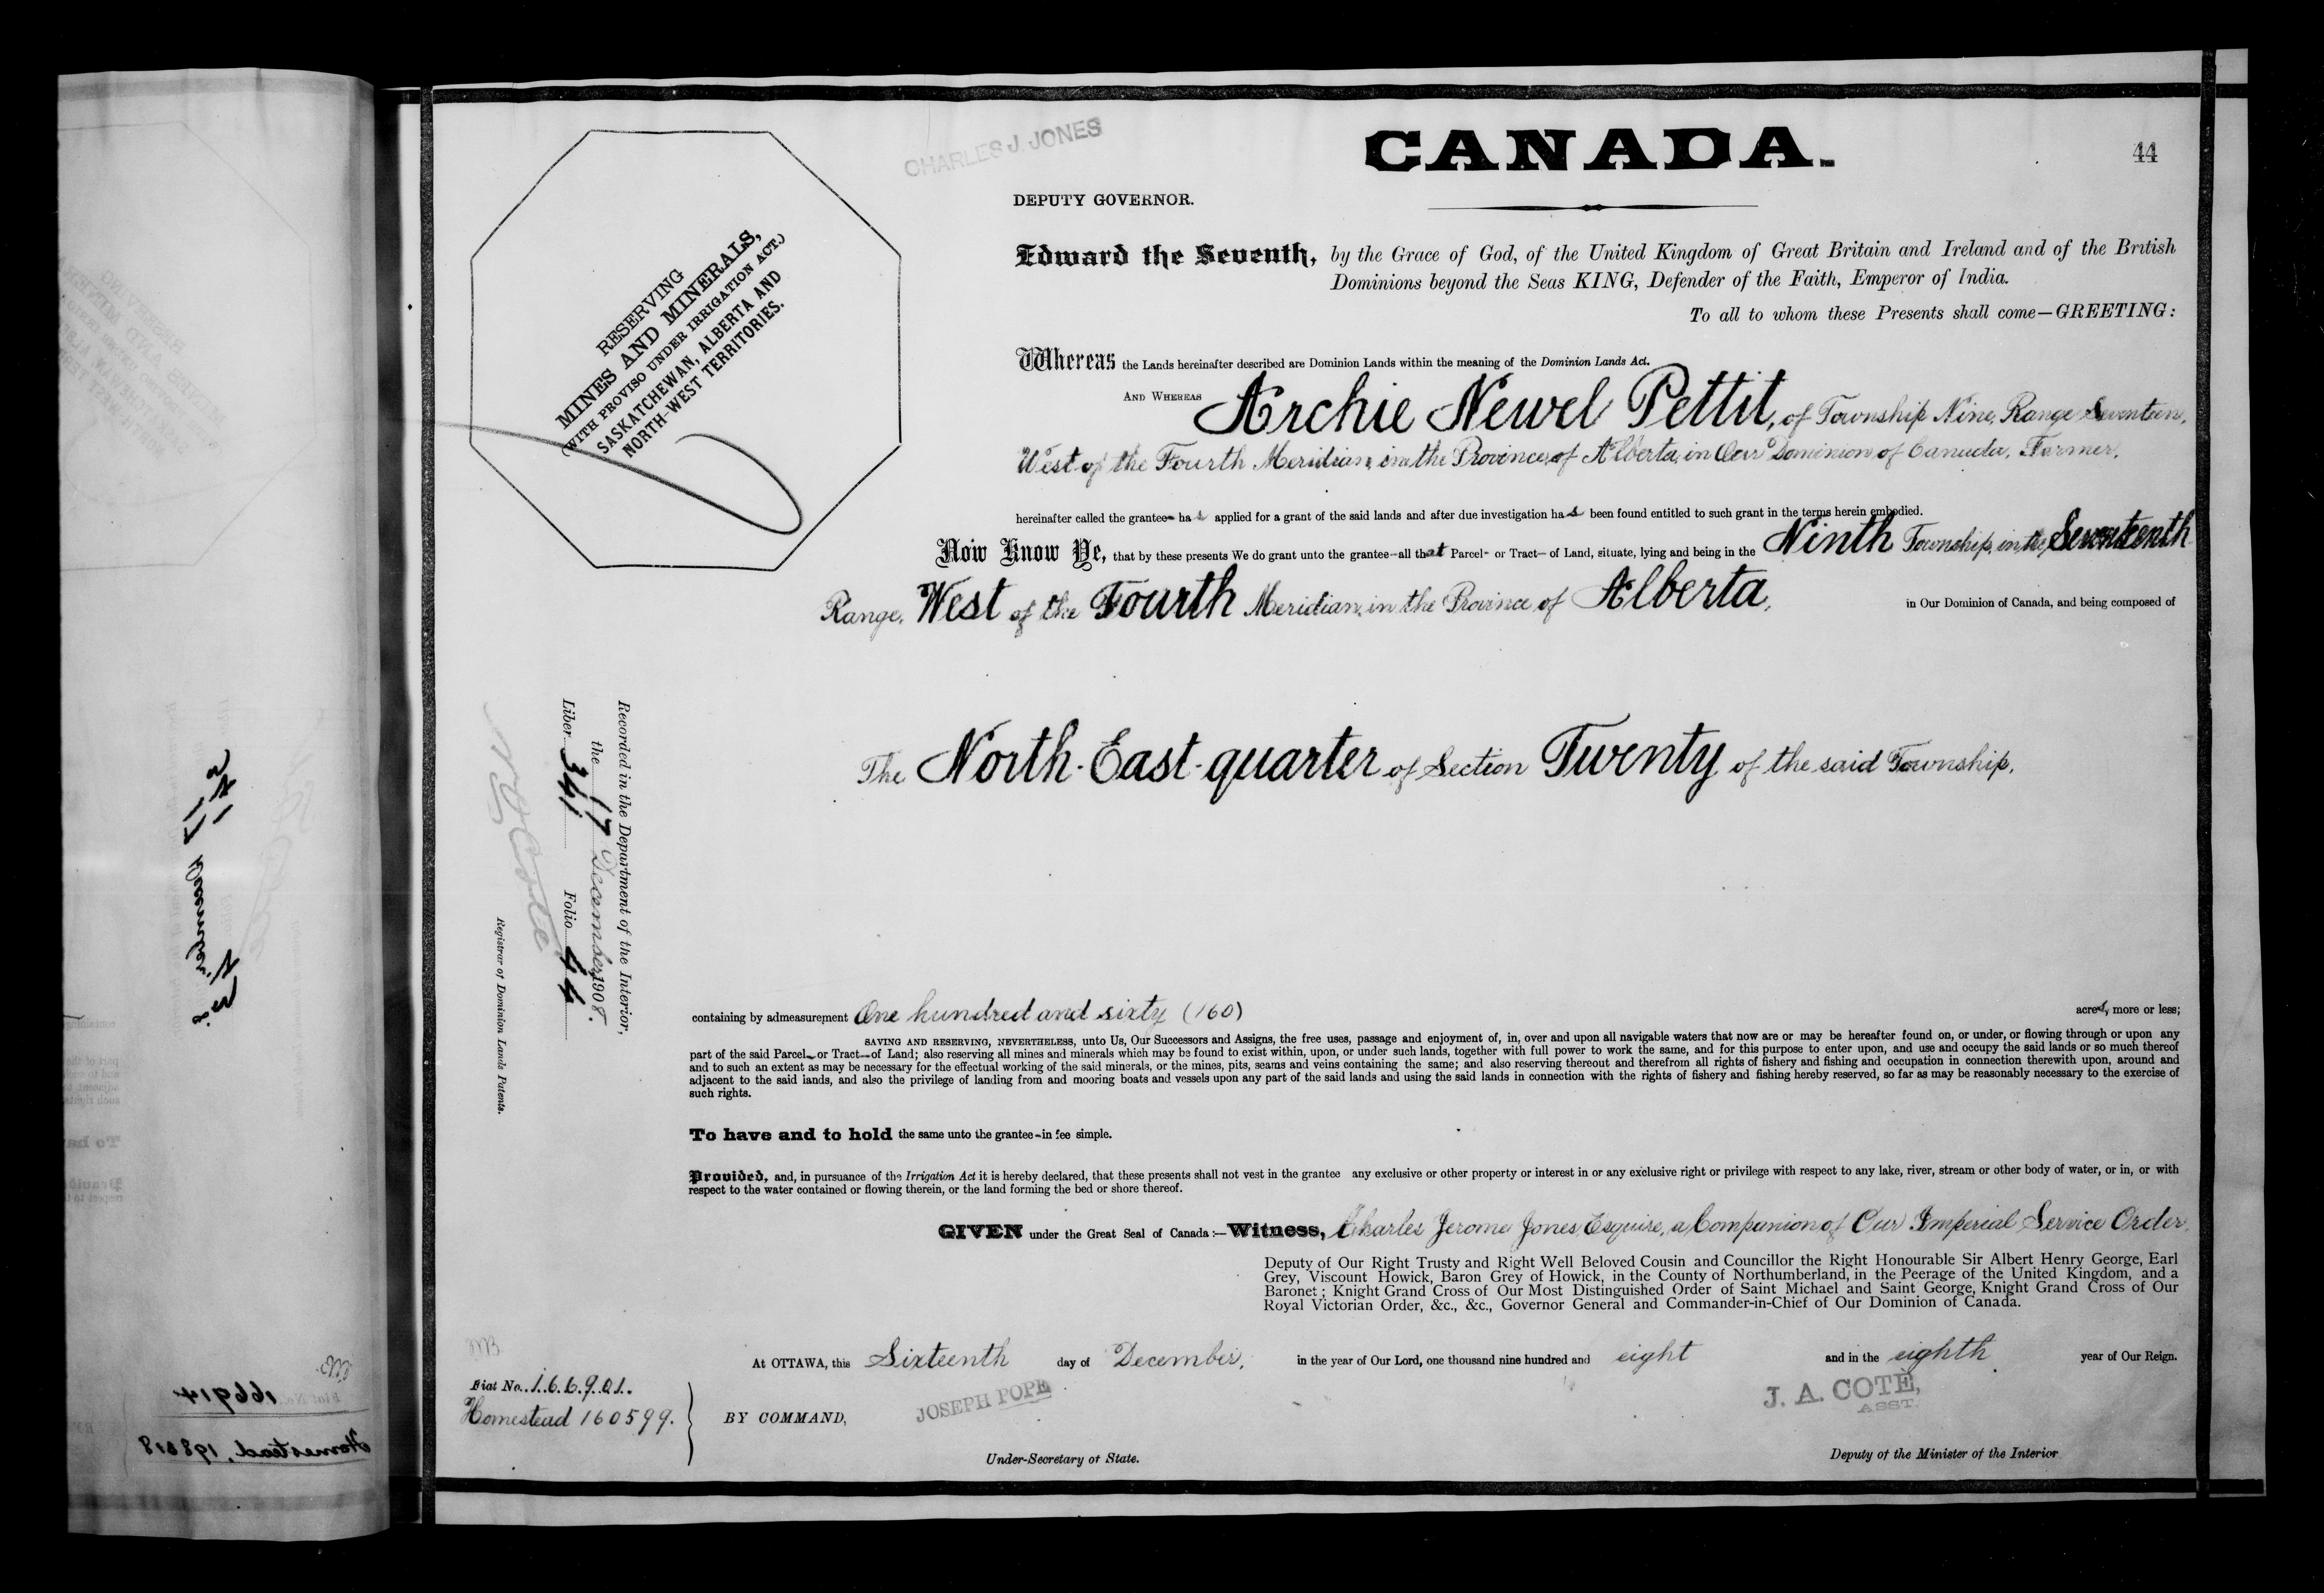 CHARLES J. JONES
CANADA.
44
DEPUTY GOVERNOR.
RESERVING
MINES AND MINERALS,
(WITH PROVISO UNDER IRRIGATION ACT.)
SASKATCHEWAN, ALBERTA AND
NORTH-WEST TERRITORIES.
Edward the Seventh, by the Grace of God, of the United Kingdom of Great Britain and Ireland and of the British
Dominions beyond the Seas KING, Defender of the Faith, Emperor of India.
To all to whom these Presents shall come—GREETING:
Whereas the Lands hereinafter described are Dominion Lands within the meaning of the Dominion Lands Act.
AND WHEREAS Archie Newel Pettit, of Township Nine, Range Seventeen,
West of the Fourth Meridian, in the Province of Alberta, in Our Dominion of Canada, Farmer,
hereinafter called the grantee- has applied for a grant of the said lands and after due investigation has been found entitled to such grant in the terms herein embodied.
Now Know Ye, that by these presents We do grant unto the grantee—all that Parcel- or Tract— of Land, situate, lying and being in the Ninth Township, in the Seventeenth
Range, West of the Fourth Meridian, in the Province of Alberta, in Our Dominion of Canada, and being composed of
The North-East-quarter of Section Twenty of the said Township,
Recorded in the Department of the Interior,
the 17 December 1908.
Liber 341 Folio 44
N O Coté
Registrar of Dominion Lands Patents.
containing by admeasurement One hundred and sixty (160) acres, more or less;
SAVING AND RESERVING, NEVERTHELESS, unto Us, Our Successors and Assigns, the free uses, passage and enjoyment of, in, over and upon all navigable waters that now are or may be hereafter found on, or under, or flowing through or upon any
part of the said Parcel— or Tract—of Land; also reserving all mines and minerals which may be found to exist within, upon, or under such lands, together with full power to work the same, and for this purpose to enter upon, and use and occupy the said lands or so much thereof
and to such an extent as may be necessary for the effectual working of the said minerals, or the mines, pits, seams and veins containing the same; and also reserving thereout and therefrom all rights of fishery and fishing and occupation in connection therewith upon, around and
adjacent to the said lands, and also the privilege of landing from and mooring boats and vessels upon any part of the said lands and using the said lands in connection with the rights of fishery and fishing hereby reserved, so far as may be reasonably necessary to the exercise of
such rights.
To have and to hold the same unto the grantee-in fee simple.
Provided, and, in pursuance of the Irrigation Act it is hereby declared, that these presents shall not vest in the grantee any exclusive or other property or interest in or any exclusive right or privilege with respect to any lake, river, stream or other body of water, or in, or with
respect to the water contained or flowing therein, or the land forming the bed or shore thereof.
GIVEN under the Great Seal of Canada:—Witness, Charles Jerome Jones, Esquire, a Companion of Our Imperial Service Order,
Deputy of Our Right Trusty and Right Well Beloved Cousin and Councillor the Right Honourable Sir Albert Henry George, Earl
Grey, Viscount Howick, Baron Grey of Howick, in the County of Northumberland, in the Peerage of the United Kingdom, and a
Baronet; Knight Grand Cross of Our Most Distinguished Order of Saint Michael and Saint George, Knight Grand Cross of Our
Royal Victorian Order, &c., &c., Governor General and Commander-in-Chief of Our Dominion of Canada.
At OTTAWA, this Sixteenth day of December, in the year of Our Lord, one thousand nine hundred and eight and in the eighth year of Our Reign.
Fiat No. 166901.
Homestead 160599.
BY COMMAND,
JOSEPH POPE
Under-Secretary of State.
J. A. COTE,
ASST.
Deputy of the Minister of the Interior
166914
Homestead, 198618